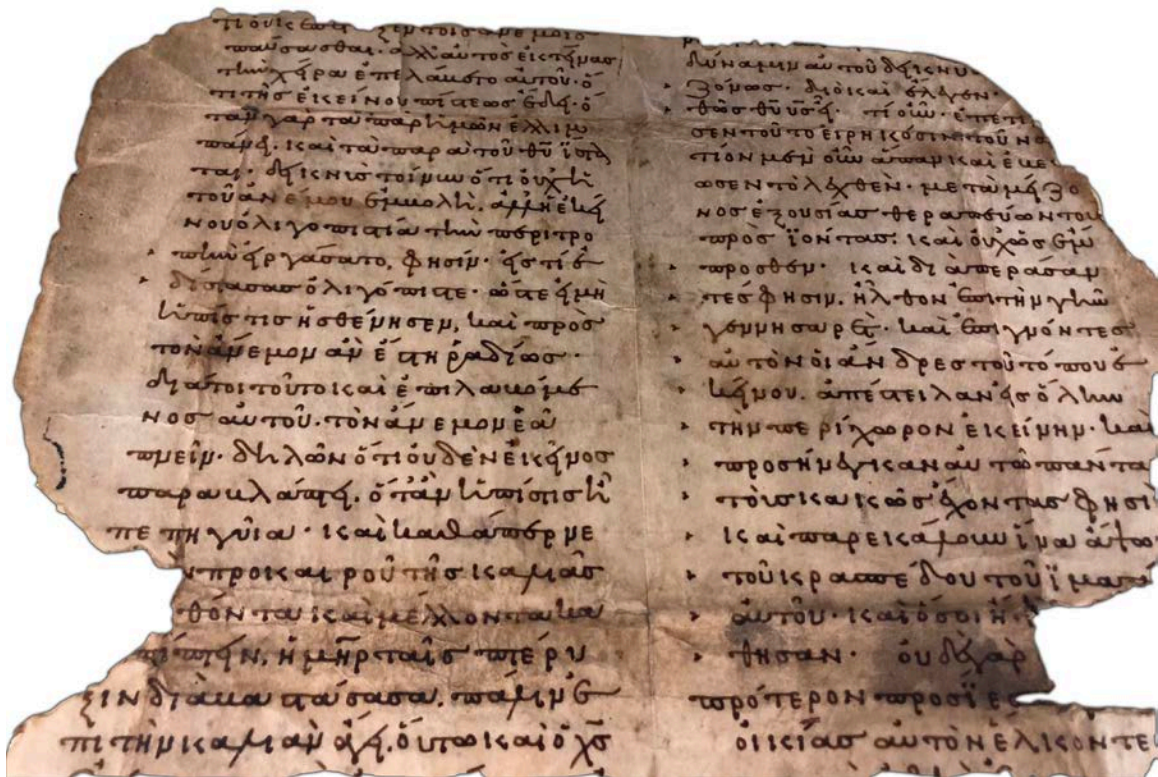 παύσασθαι· ἀλλ' αὐτὸς ἐκτείνας
τὴν χεῖρα ἐπελάβετο αὐτοῦ· ὅ
τι τῆς ἐκείνου πίστεως ἔδει· ὅ
ταν γὰρ τὰ παρ' ἡμῶν ἐλλίπη
καὶ τὰ παρὰ τοῦ θυ ἵστα
ται· δεικνὺς τοίνυν ὅτι οὐχ ἡ
τοῦ ἀνέμου ἐμβολὴ, ἀλλ' ἡ ἐκεί
νου ὀλιγοπιστία τὴν περιτρο
πὴν εἰργάσατο, φησίν· εἰς τί ἐ
δίστασας ὀλιγόπιστε· ὥστε εἰ μὴ
ἡ πίστις ἠσθένησεν, καὶ πρὸς
τὸν ἄνεμον ἂν ἔστη ῥαδίως·
διάτοι τοῦτο καὶ ἐπιλαβόμε
νος αὐτοῦ· τὸν ἄνεμον ἐᾶ
πνεῖν· δηλῶν ὅτι οὐδὲν ἐκεῖνος
παραβλάπτει, ὅταν ἡ πίστις ἦ
πεπηγυῖα· καὶ καθάπερ νε
πρὸ καιροῦ τῆς καλιᾶς
θόντα καὶ μέλλοντα κα
πίπτειν, ἡ μηρ ταῖς πτέρυ
ξιν διαβαστάσασα, πάλιν ἐ
πὶ τὴν καλιὰν ἄγει, οὕτω καὶ ὁ χς
δύναμιν αὐτοῦ δεικνὺς
ζόνως· διὸ καὶ ἔλεγον·
θῶς θυ υς εἶ· τί οὖν· ἐπετί
σεν τοῦτο εἰρηκόσιν· τοὐνα
τίον μὲν οὖν ἅπαν καὶ ἐβε
ωσεν τὸ λεχθὲν· μετὰ μείζο
νος ἐξουσίας θεραπεύων τοὺ
προσϊόντας· καὶ οὐχ ὡς ἔμ
προσθεν· καὶ διαπεράσαν
τές φησιν, ἦλθον ἐπὶ τὴν γῆν
γεννησαρέτ· καὶ ἐπιγνόντες
αὐτὸν οἱ ἄνδρες τοῦ τόπου ἐ
κείνου· ἀπέστειλαν εἰς ὅλην
τὴν περίχωρον ἐκείνην· καὶ
προσήνεγκαν αὐτῶ πάντα
τοὺς κακῶς ἔχοντας φησὶ
καὶ παρεκάλουν ἵνα ἅψω
τοῦ κρασπέδου τοῦ ϊματί
αὐτοῦ· καὶ ὅσοι ἥ
θησαν· οὐδὲ γὰρ
πρότερον προσϊε
οἰκίας αὐτὸν ἕλκοντε